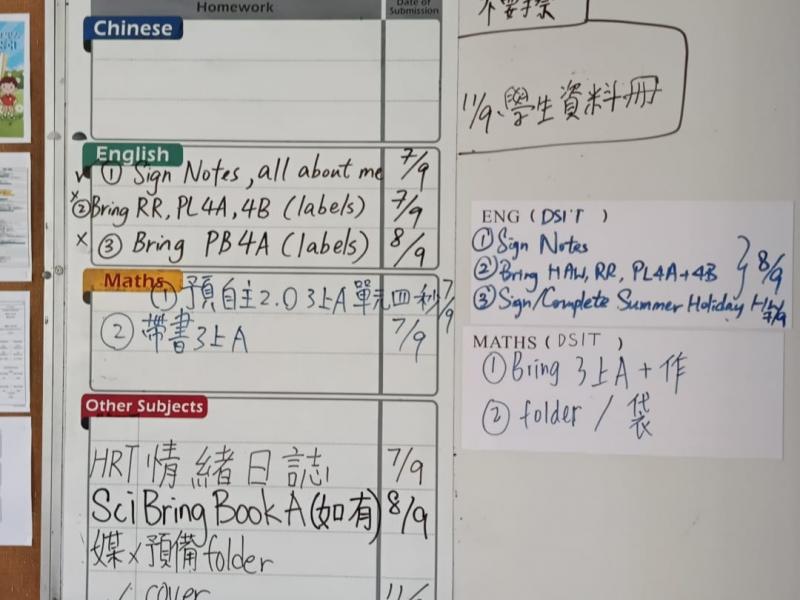 Homework
Date of Submission
Chinese
English
① Sign Notes, all about me 7/9
x ② Bring RR, PL4A, 4B (labels) 7/9
x ③ Bring PB4A (labels) 8/9
Maths
① 預自主2.0 3上A單元四秒 7/9
② 帶書3上A 7/9
Other Subjects
HRT 情緒日誌 7/9
Sci Bring Book A (如有) 8/9
預備folder
cover
不要手禁
11/9.學生資料冊
ENG (DSIT)
① Sign Notes
② Bring HAW, RR, PL4A+4B 8/9
③ Sign/Complete Summer Holiday 7/9
MATHS (DSIT)
① Bring 3上A + 作
② folder / 袋